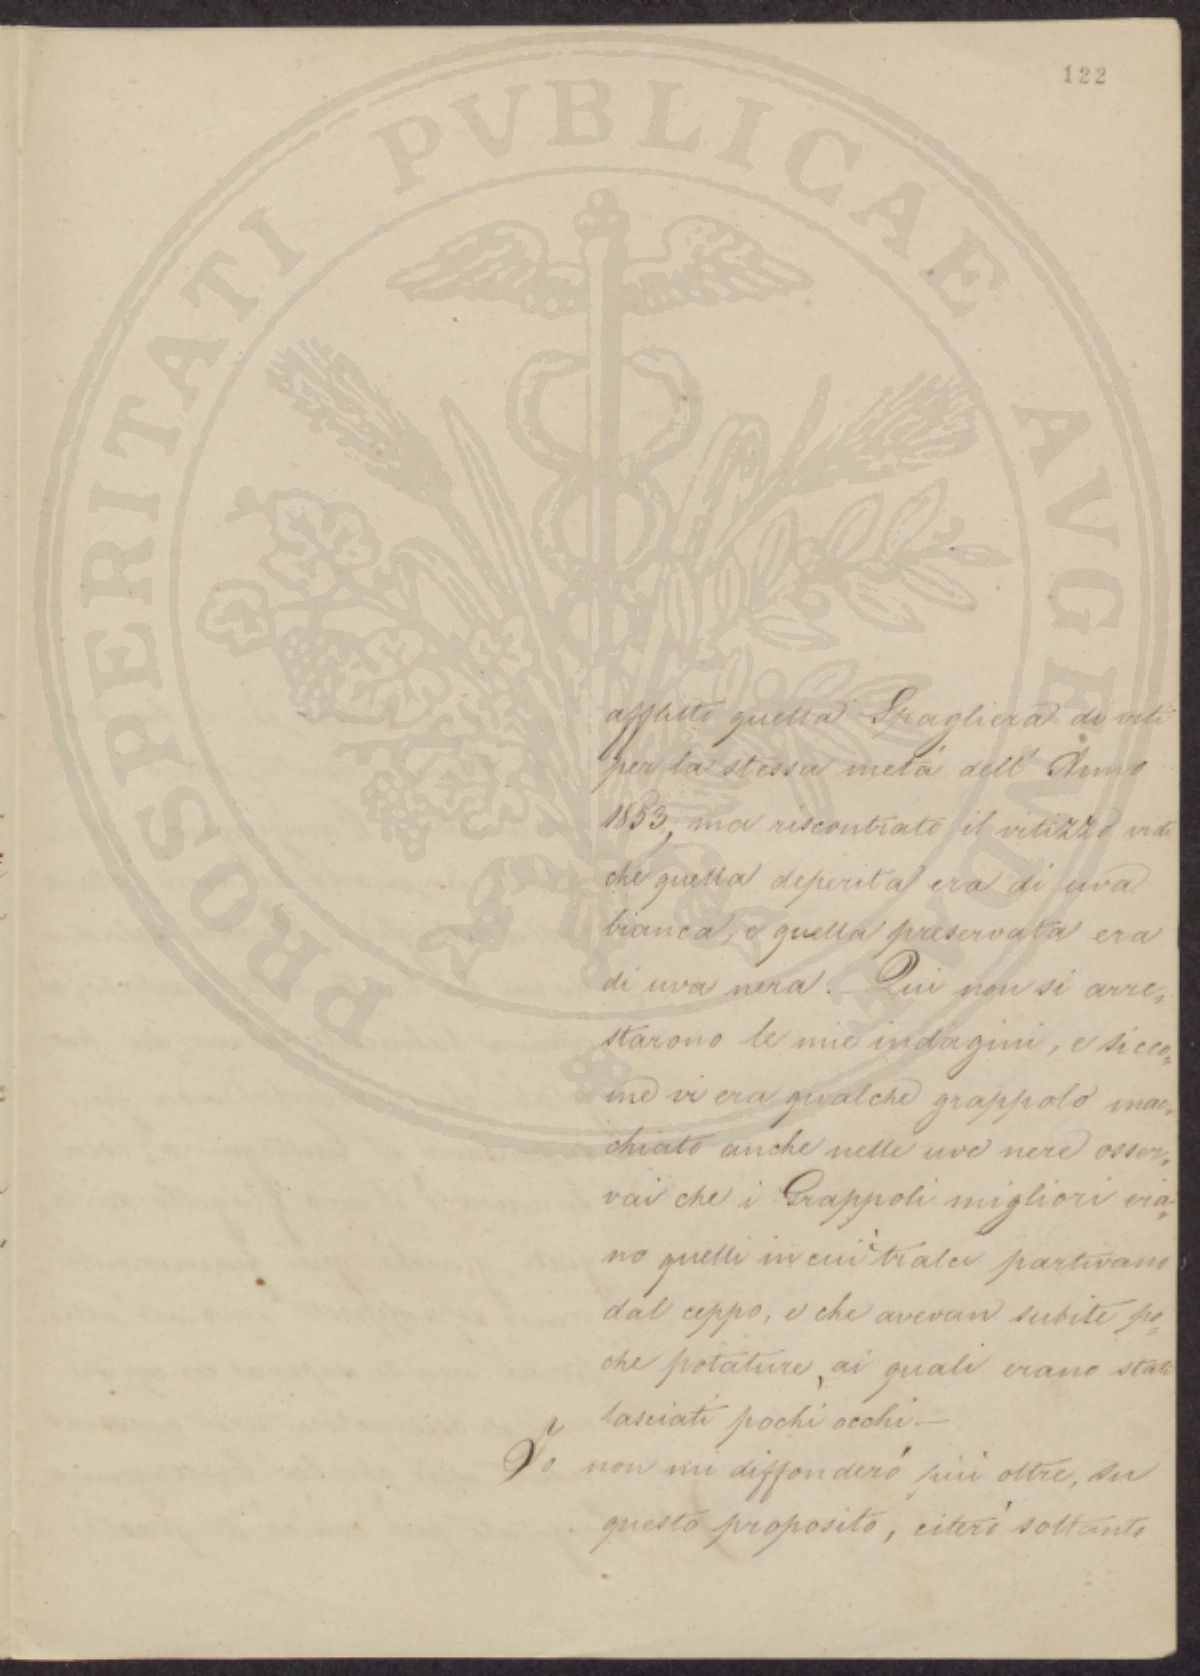 122
PROSPERITATI PUBLICAE AUGENDAE
afflitto quella Spagliera di viti
per la stessa metá dell' Anno
1853, ma riscontrato il vitizzo vidi
che quella deperita era di uva
bianca, e quella preservata era
di uva nera. Qui non si arre„
starono le mie indagini, e sicco„
me vi era qualche grappolo mac„
chiato anche nelle uve nere osser„
vai che i Grappoli migliori era„
no quelli in cui i tralci partivano
dal ceppo, e che avevan subite po„
che potature, ai quali erano stati
lasciati pochi occhi —
Io non mi diffonderó piú oltre, su
questo proposito, citeró soltanto